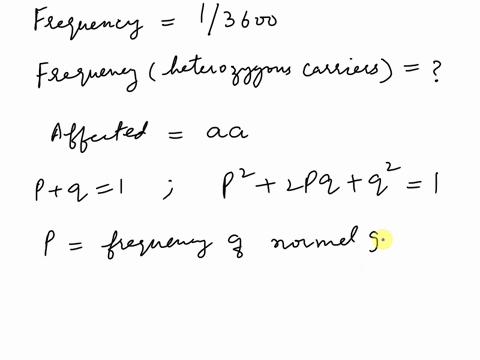 Frequency = 1/3600
Frequency (heterozygous carriers) = ?
Affected = aa
P+q=1 ; P²+2Pq+q²=1
P = frequency of normal g